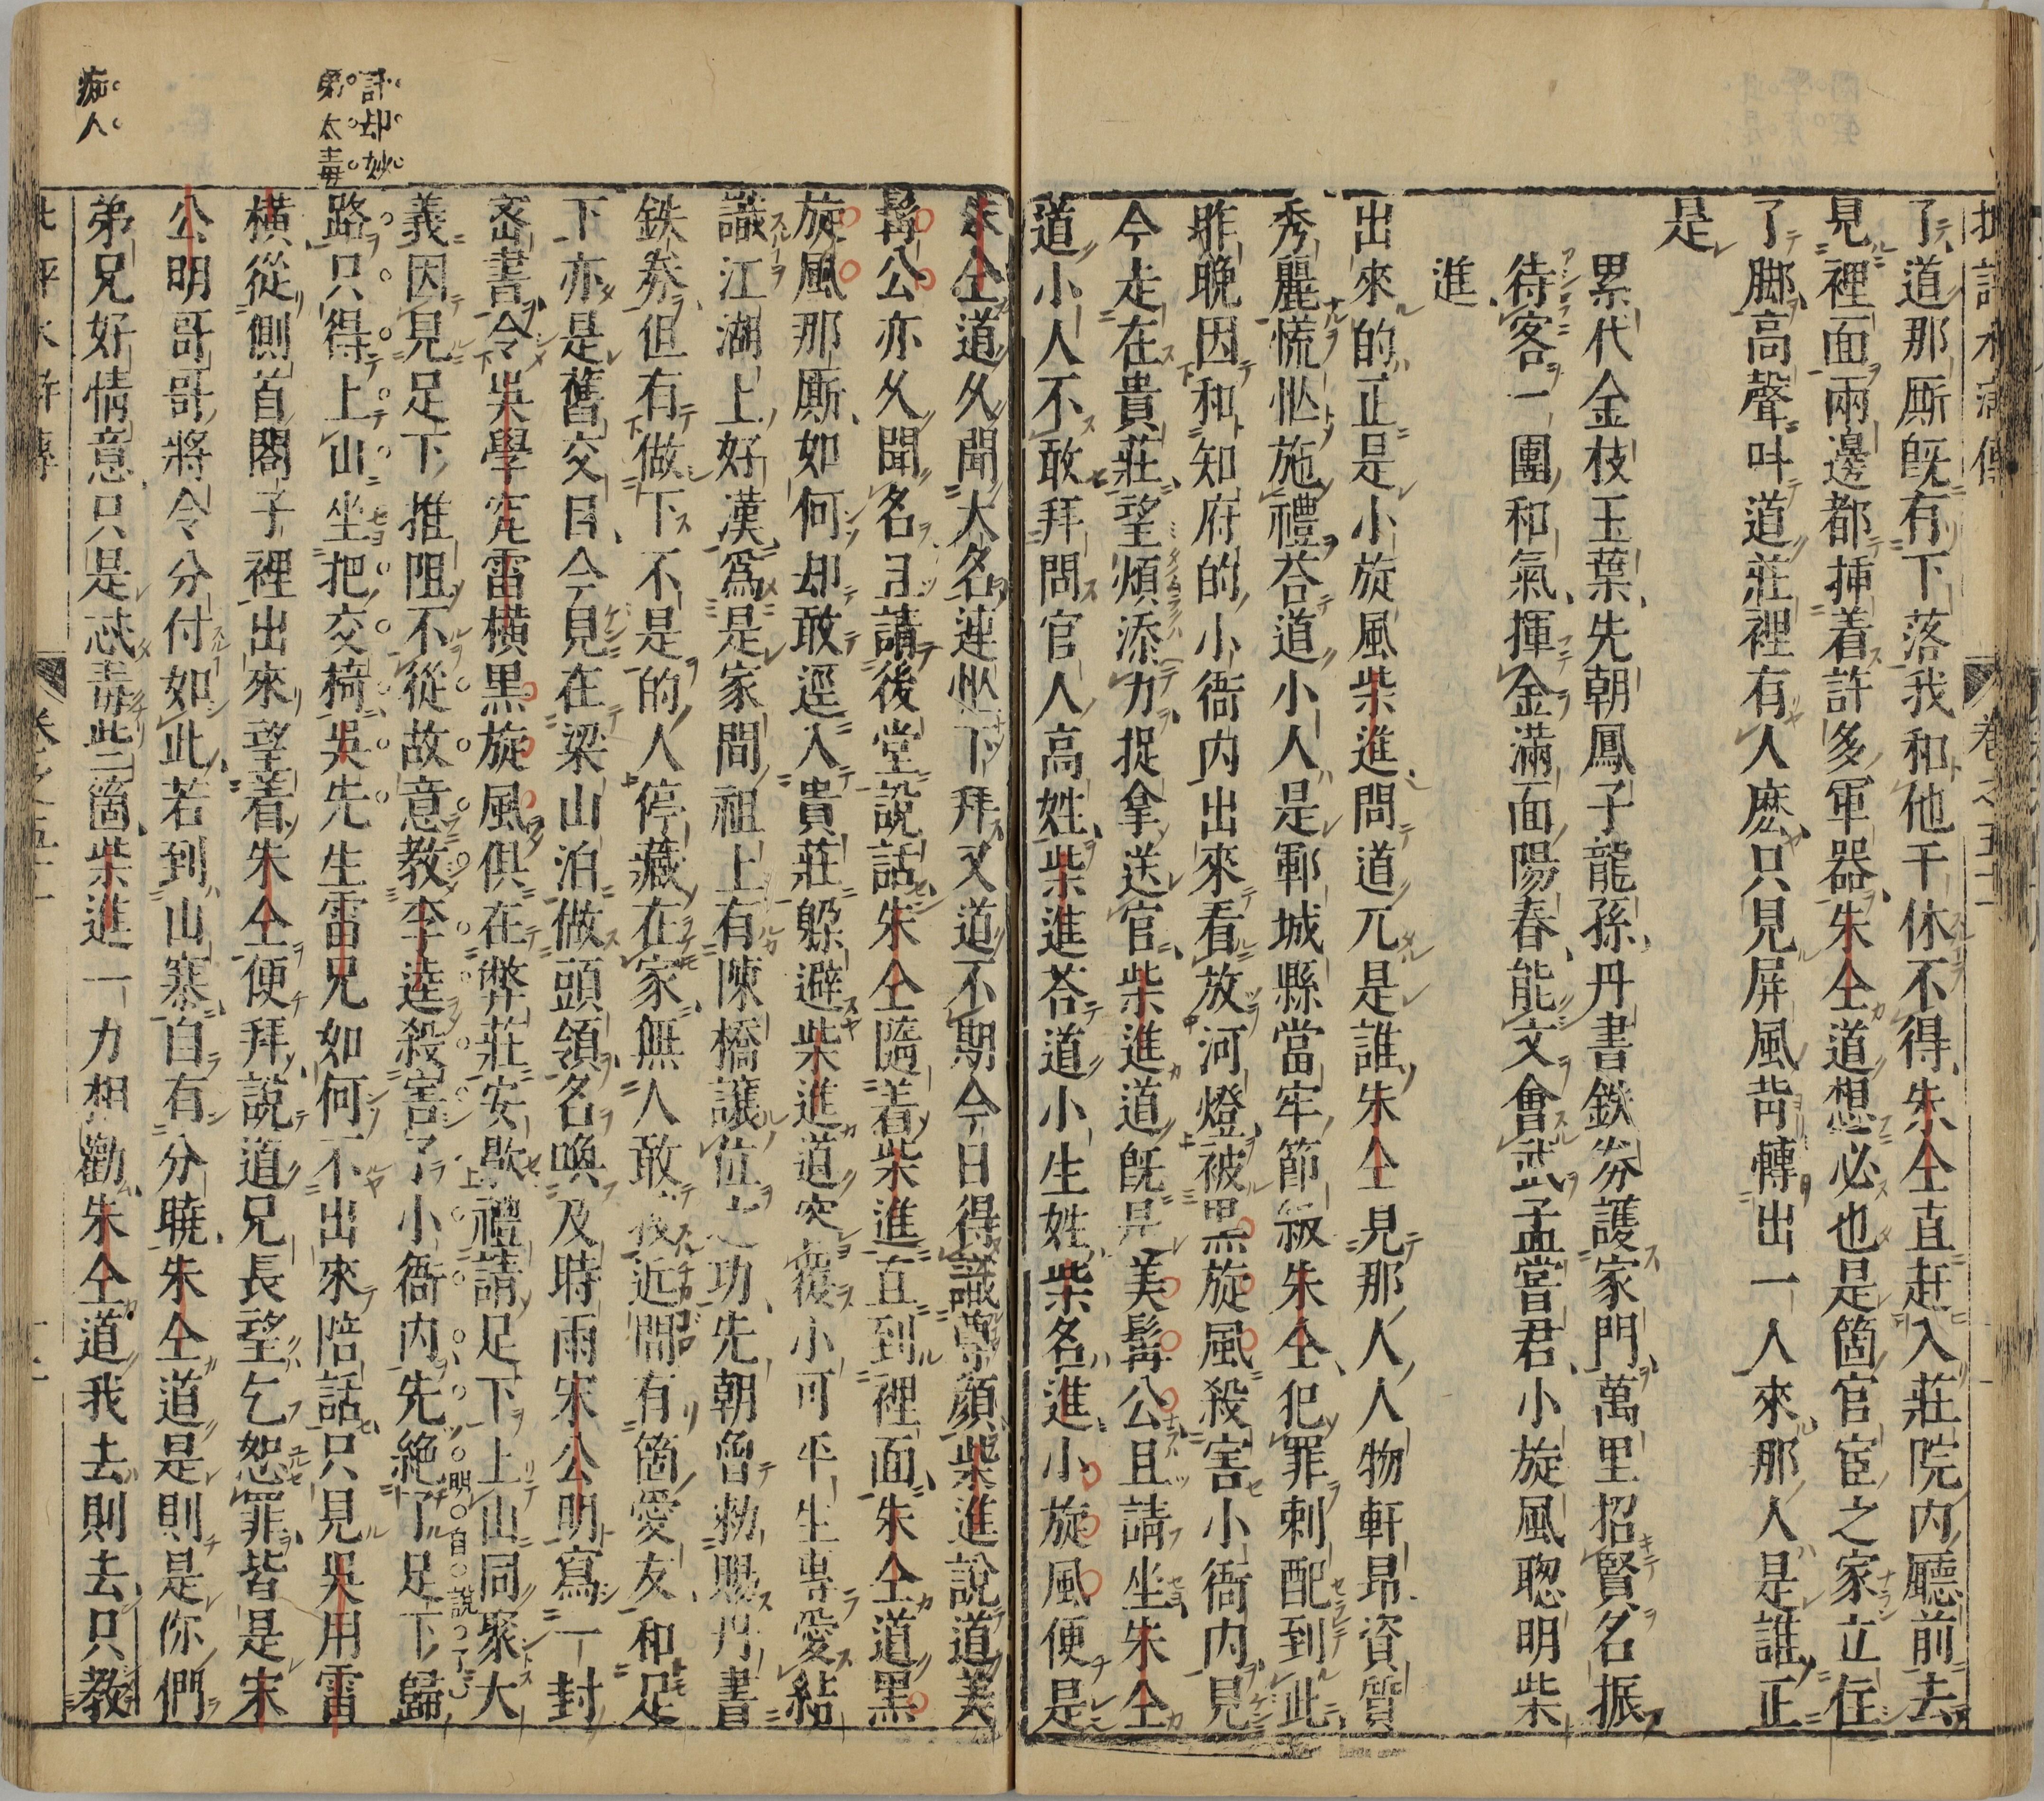 批評水滸傳
卷之五十一
了道那厮既有下落我和他干休不得朱仝直赶入莊院内廳前去
見裡面兩邊都挿着許多軍器朱仝道想必也是箇官宦之家立住
了脚高聲呌道莊裡有人麽只見屏風背轉出一人來那人是誰正
是
累代金枝玉葉先朝鳳子龍孫丹書鉄券護家門萬里招賢名振
待客一團和氣揮金滿面陽春能文會武孟嘗君小旋風聦明柴
進
出來的正是小旋風柴進問道兀是誰朱仝見那人人物軒昂資質
秀麗慌忙施禮荅道小人是鄆城縣當牢節級朱仝犯罪刺配到此
昨晚因和知府的小衙内出來看放河燈被黑旋風殺害小衙内見
今走在貴莊望煩添力捉拿送官柴進道既是美髯公且請坐朱仝
道小人不敢拜問官人高姓柴進荅道小生姓柴名進小旋風便是
朱仝道久聞大名連忙下拜又道不期今日得識尊顔柴進說道美
髯公亦久聞名且請後堂說話朱仝隨着柴進直到裡面朱仝道黑
旋風那厮如何却敢逕入貴莊躱避柴進道容覆小可平生專愛結
識江湖上好漢爲是家間祖上有陳橋讓位之功先朝曾勑賜丹書
鉄券但有做下不是的人停藏在家無人敢搜近間有箇愛友和足
下亦是舊交目今見在梁山泊做頭領名喚及時雨宋公明寫一封
宻書令吳學究雷橫黑旋風俱在弊莊安歇禮請足下上山同聚大
義因見足下推阻不從故意教李逵殺害了小衙内先絶了足下歸
明自說了
路只得上山坐把交椅吳先生雷兄如何不出來陪話只見吳用雷
橫從側首閣子裡出來望着朱仝便拜說道兄長望乞恕罪皆是宋
公明哥哥將令分付如此若到山寨自有分曉朱仝道是則是你們
弟兄好情意只是忒毒些箇柴進一力相勸朱仝道我去則去只教
計却妙
弟太毒
痴人